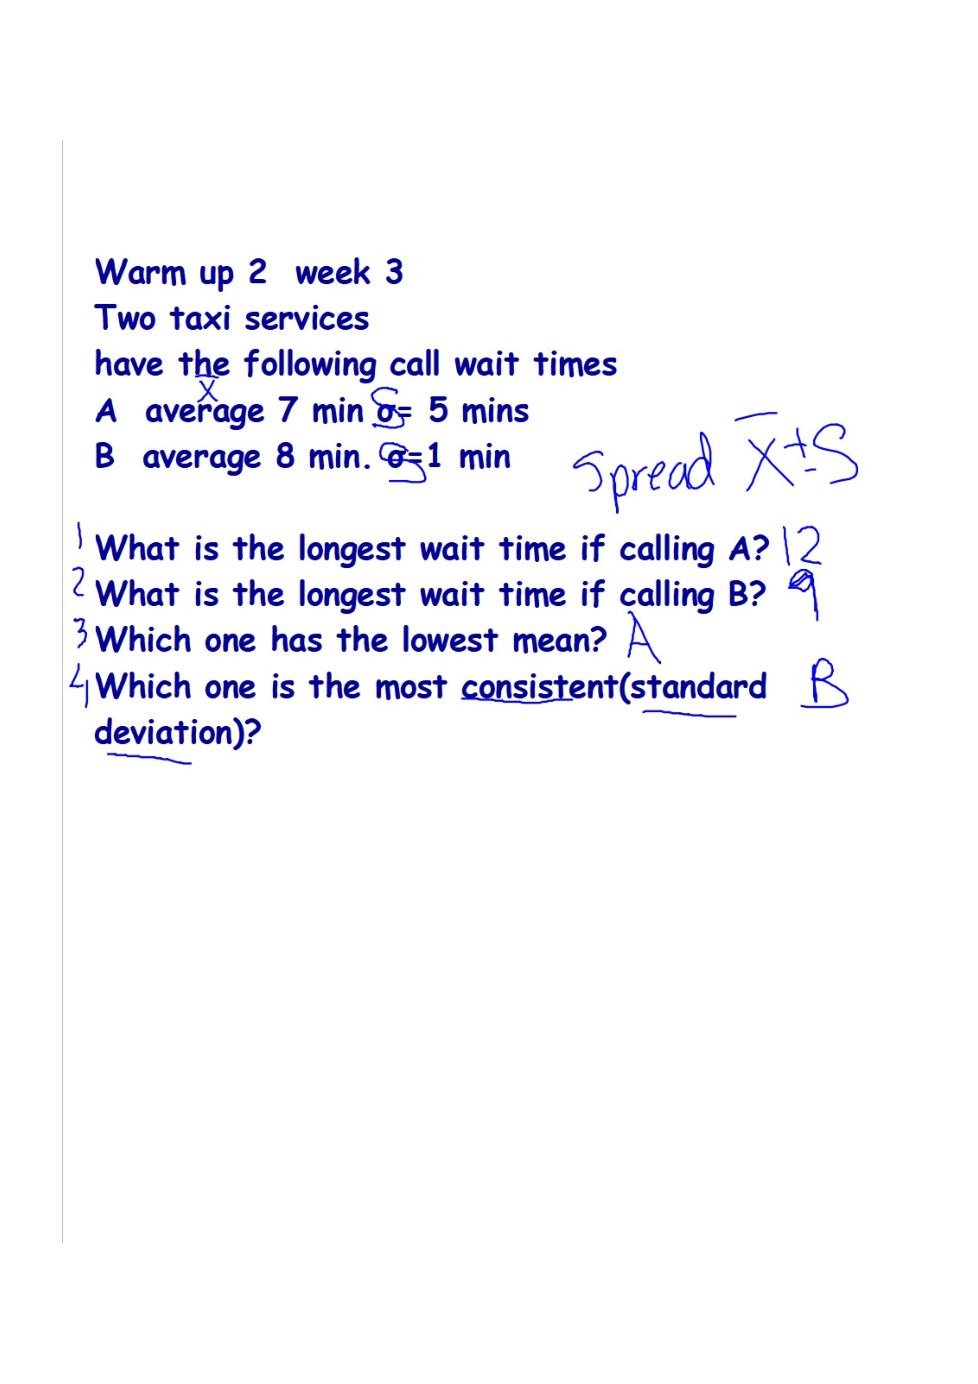 Warm up 2 week 3
Two taxi services
have the following call wait times
x̄
A average 7 min σ= 5 mins
S
B average 8 min. σ=1 min
S
Spread x̄±S
1 What is the longest wait time if calling A? 12
2 What is the longest wait time if calling B? 9
3 Which one has the lowest mean? A
4 Which one is the most consistent(standard B
deviation)?